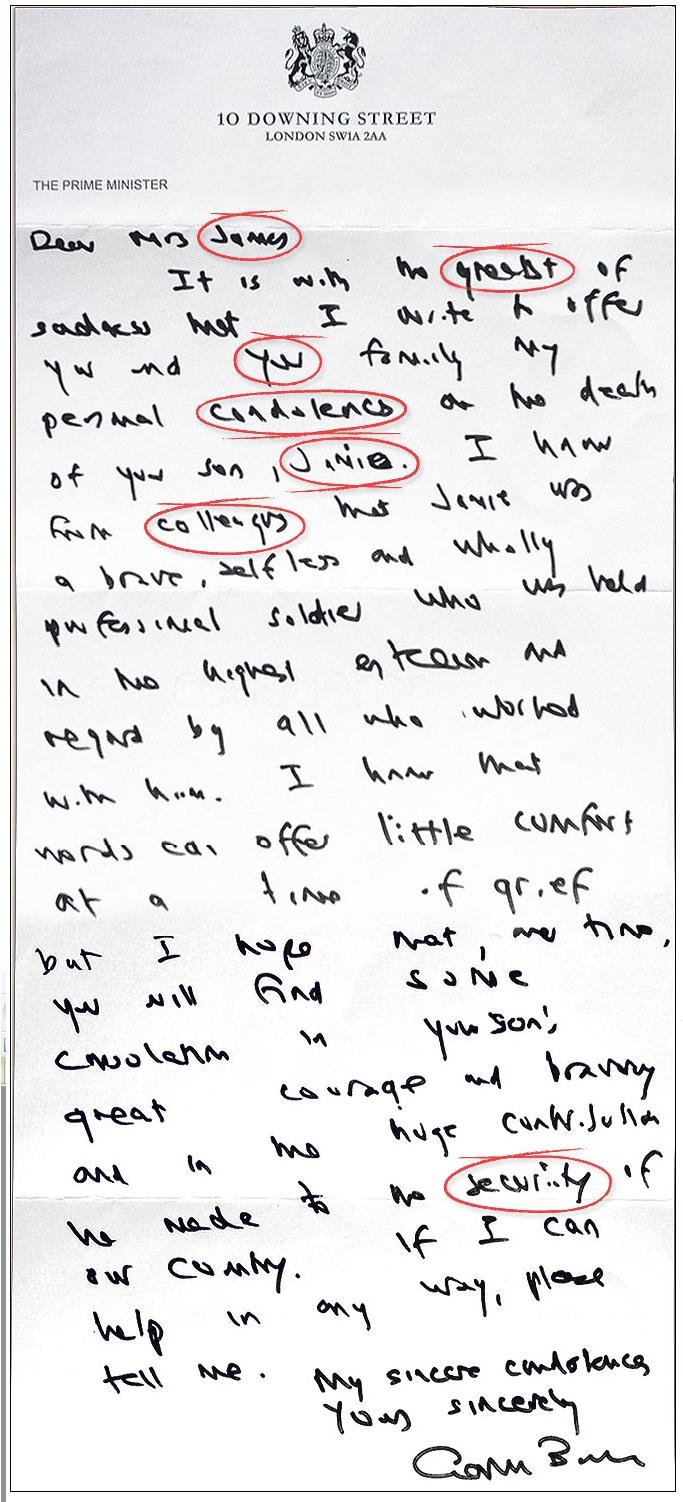 10 DOWNING STREET
LONDON SW1A 2AA
THE PRIME MINISTER
Dear Mrs James
It is with the greatst of
sadness that I write to offer
you and your family my
personal condolencs on the death
of your son, Jamie. I know
from colleagus that Jamie was
a brave, selfless and wholly
professional soldier who was held
in the highest esteem and
regard by all who worked
with him. I know that
words can offer little comfort
at a time of grief
but I hope that, over time,
you will find some
consolation in your son's
great courage and bravery
and in the huge contribution
he made to the securiity of
our country. If I can
help in any way, please
tell me. My sincere condolences
Yours sincerely
Gordon Brown